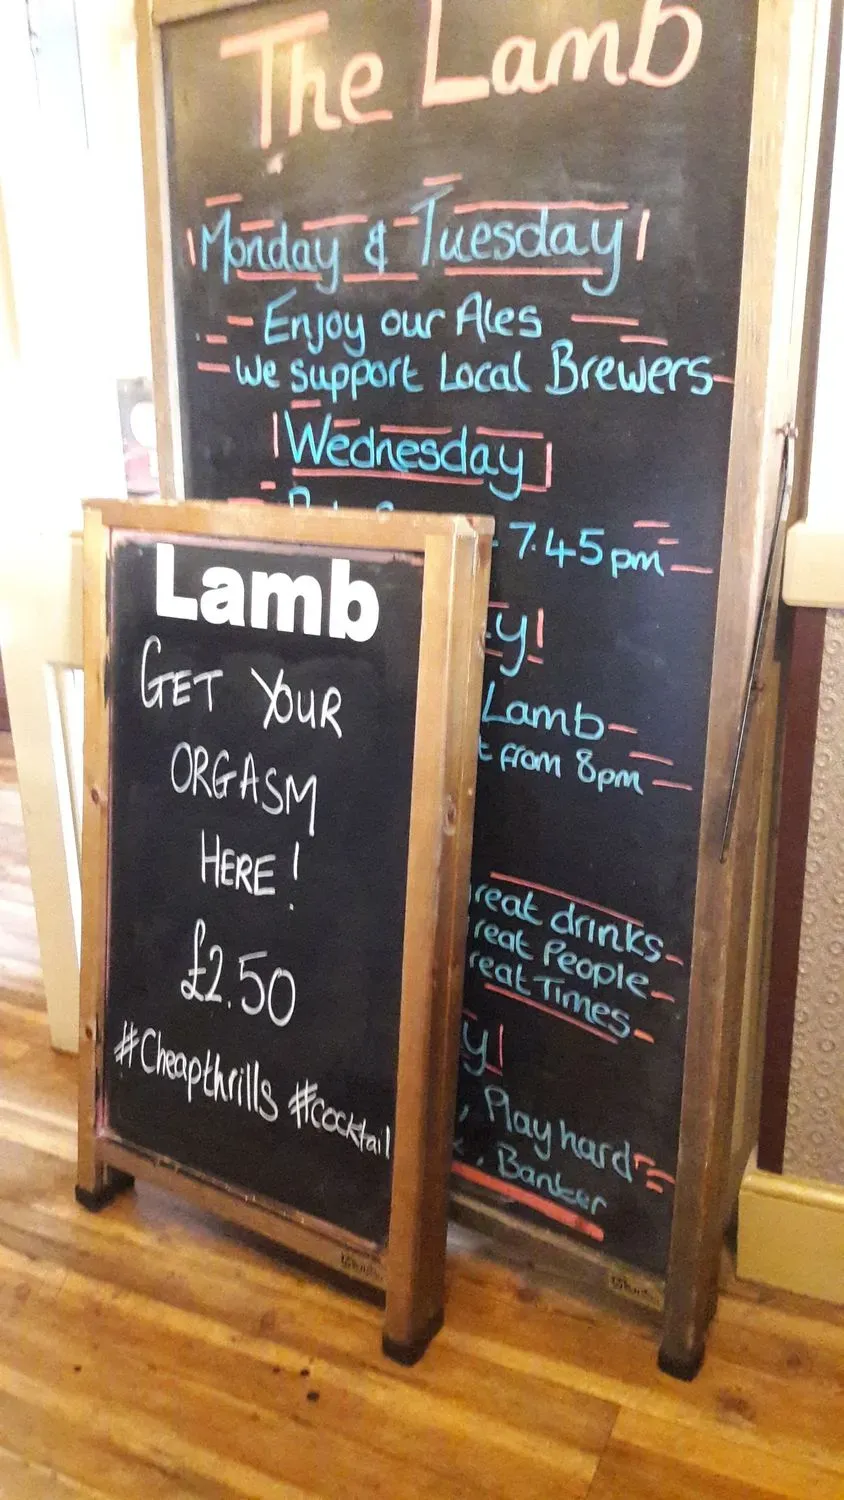 The Lamb
Monday & Tuesday
Enjoy our Ales
We support Local Brewers
Wednesday
7.45pm
Lamb
from 8pm
drinks
People
Times
Play hard
Banker
Lamb
GET YOUR
ORGASM
HERE!
£2.50
#Cheapthrills #cocktail